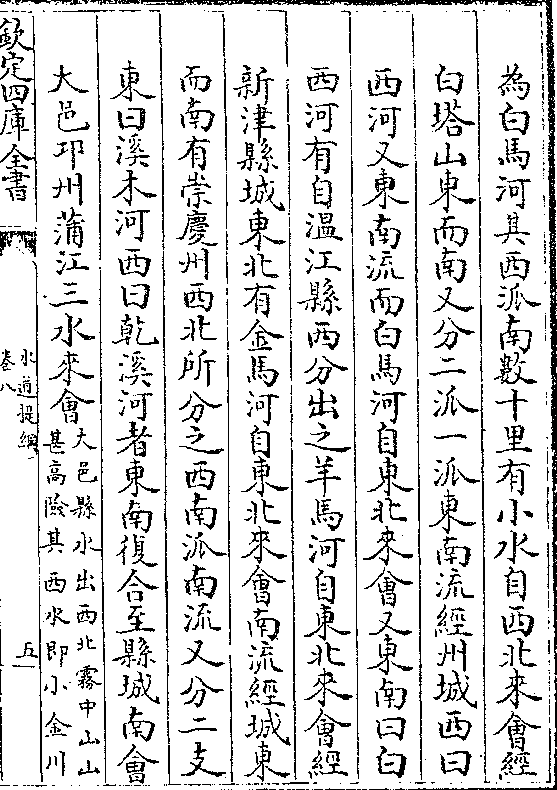 為白馬河其西派南數十里有小水自西北来會經
白塔山東而南又分二派一派東南流經州城西曰
西河又東南流而白馬河自東北来會又東南曰白
西河有自温江縣西分出之羊馬河自東北来會經
新津縣城東北有金馬河自東北来會南流經城東
而南有崇慶州西北所分之西南派南流又分二支
東曰溪木河西曰乾溪河者東南復合至縣城南會
大邑邛州蒲江三水來會大邑縣水出西北霧中山山
甚高險其西水即小金川
欽定四庫全書
水道提綱
卷八
五